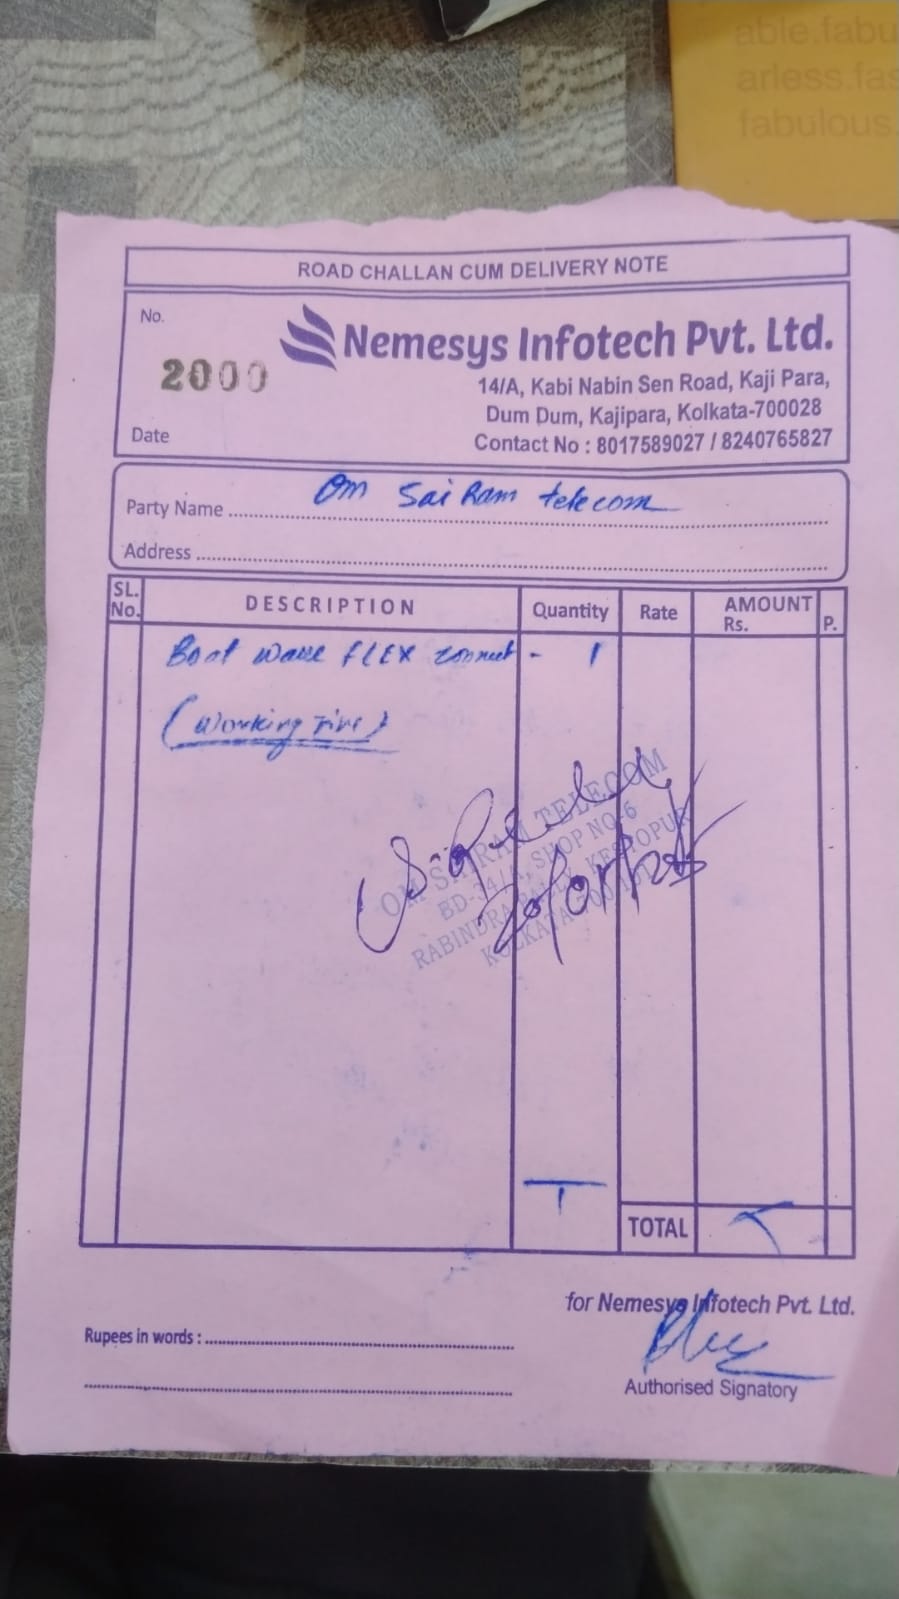 able.fabu
arless.fas
fabulous.
ROAD CHALLAN CUM DELIVERY NOTE
No.
2000
Nemesys Infotech Pvt. Ltd.
14/A, Kabi Nabin Sen Road, Kaji Para,
Dum Dum, Kajipara, Kolkata-700028
Contact No : 8017589027 / 8240765827
Date
Party Name Om Sai Ram telecom
Address
SL. No. DESCRIPTION Quantity Rate AMOUNT Rs. P.
Boat wave FLEX connect - 1
(Working
OM SAIRAM TELECOM
BD-34/A, SHOP NO-6
RABINDRA PALLY, KESTOPUR
KOLKATA
1
TOTAL
for Nemesys Infotech Pvt. Ltd.
Rupees in words :
Authorised Signatory